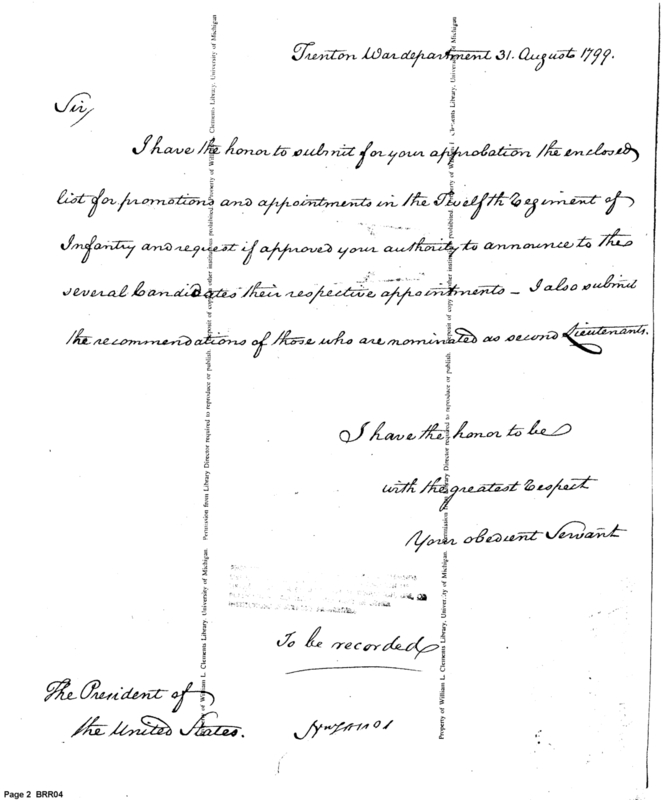 Trenton War department 31. August 1799.
Sir,
I have the honor to submit for your approbation the enclosed
list for promotions and appointments in the Twelfth Regiment of
Infantry and request if approved your authority to announce to the
several Candidates their respective appointments – I also submit
the recommendations of those who are nominated as second Lieutenants.
I have the honor to be
with the greatest respect
Your obedient Servant
To be recorded
The President of
the United States.
Property of William L. Clements Library, University of Michigan. Permission from Library Director required to reproduce or publish. Deposit of copy in other institutions prohibited.
Property of William L. Clements Library, University of Michigan. Permission from Library Director required to reproduce or publish. Deposit of copy in other institutions prohibited.
Page 2 BRR04